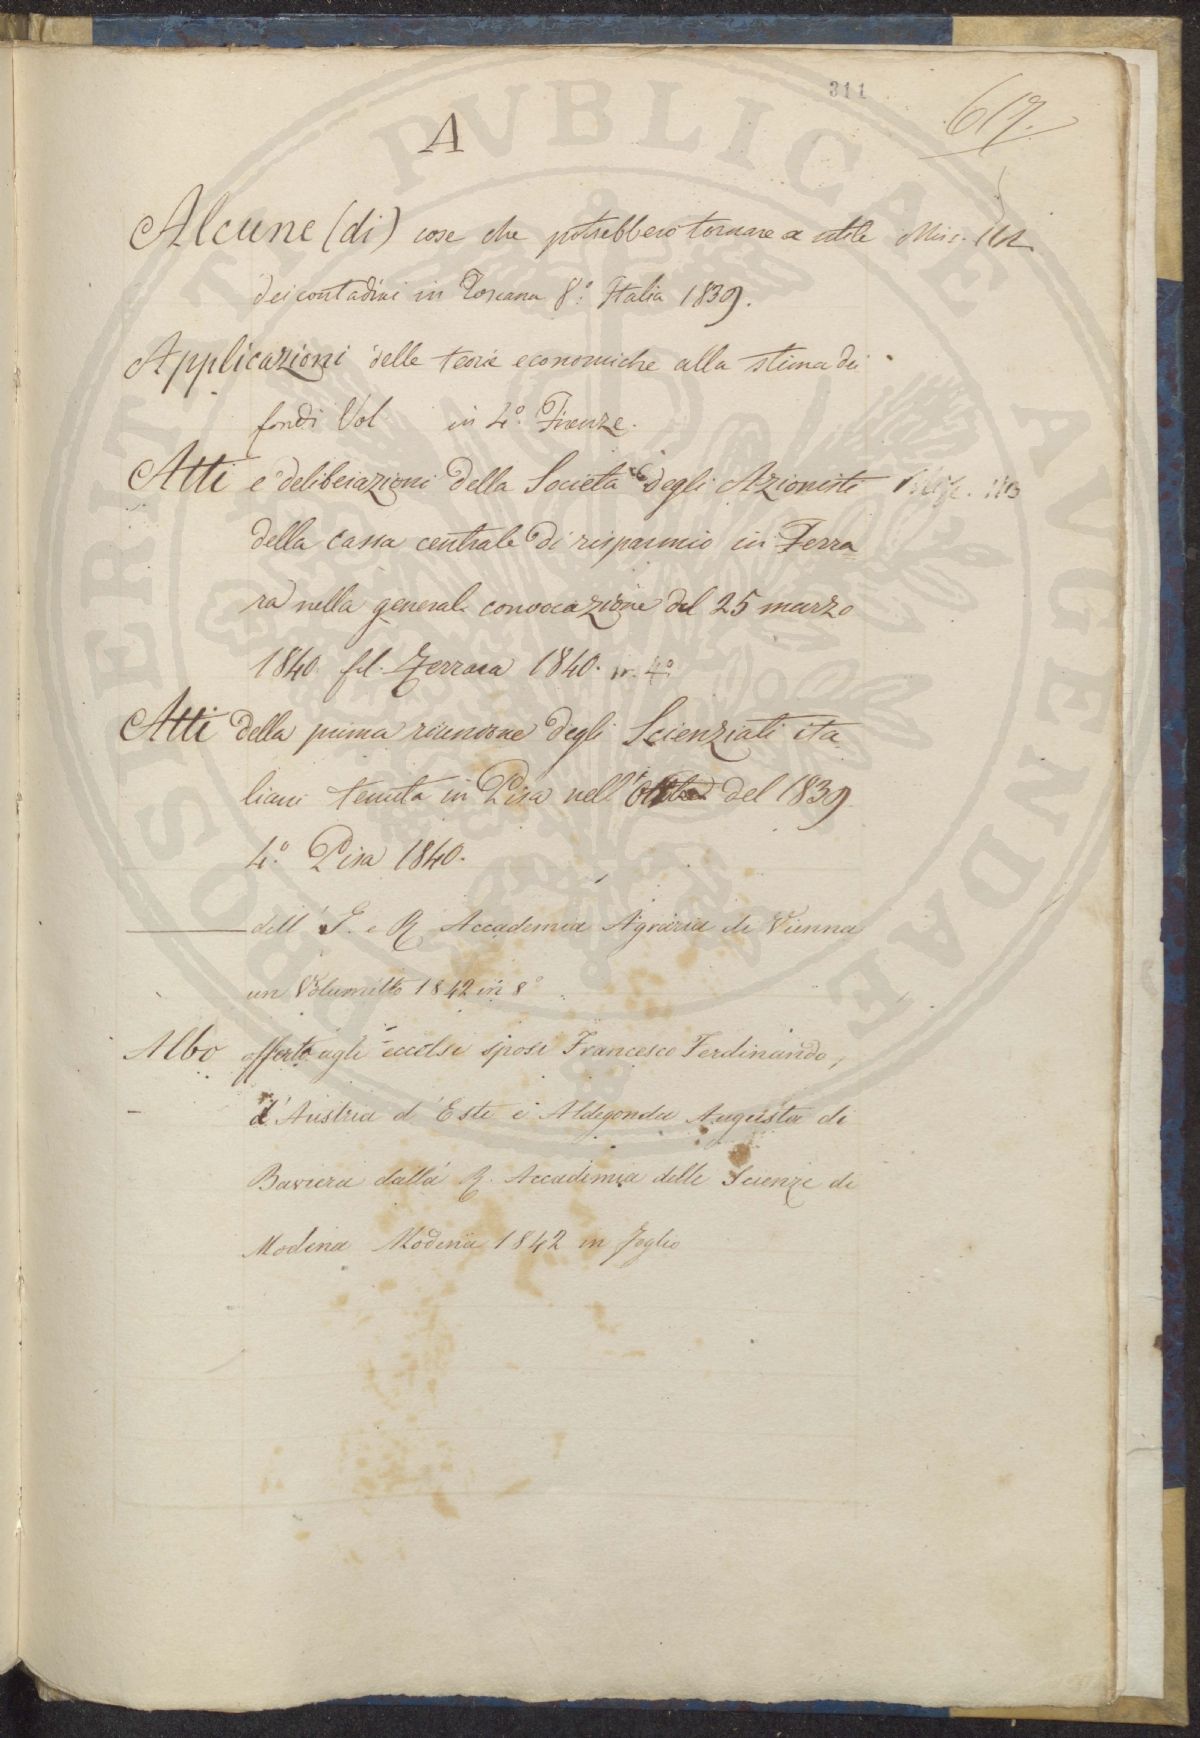 311
617.
A
Alcune (di) cose che potrebbero tornare a utile Misc.
dei contadini in Toscana 8.° Italia 1839.
Applicazioni delle teorie economiche alla stima dei
fondi Vol in 4.° Firenze.
Atti e deliberazioni della Società degli Azionisti
della cassa centrale di risparmio in Ferra
ra nella general convocazione del 25 marzo
1840. fol. Ferrara 1840. in 4°
Atti della prima riunione degli Scienziati ita
liani tenuta in Pisa nell' del 1839
4.° Pisa 1840.
dell' I. e R. Accademia Agraria di Vienna
un Volumetto 1842 in 8°
Albo offerto agli eccelsi sposi Francesco Ferdinando,
d'Austria d'Este e Aldegonda Augusta di
Baviera dalla R. Accademia delle Scienze di
Modena Modena 1842 in foglio
PROSPERITATI PVBLICAE AVGENDAE